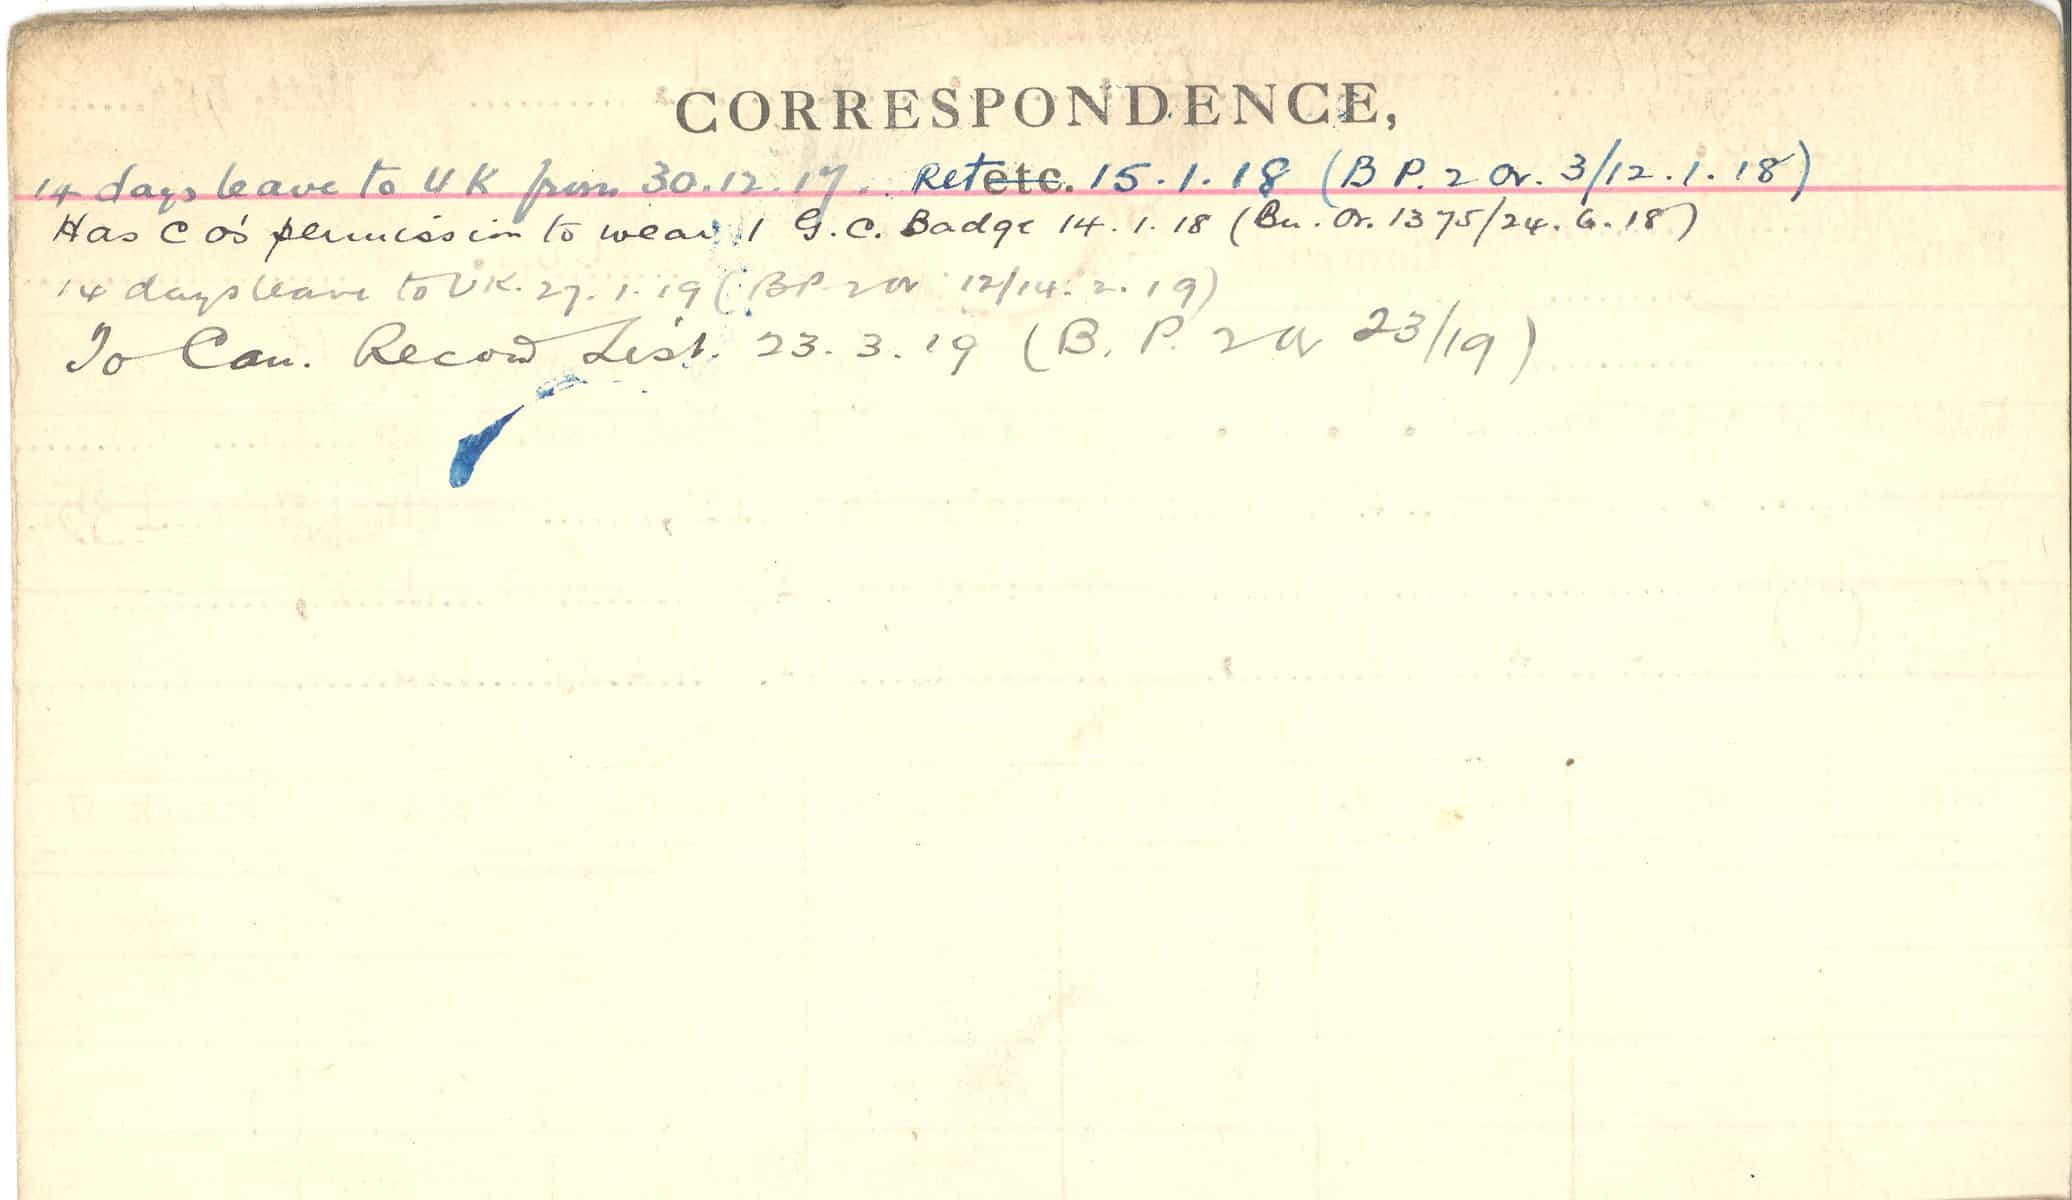 CORRESPONDENCE,
14 days leave to UK from 30.12.17. Ret etc. 15.1.18 (B P. 2 Or. 3/12.1.18)
Has C O's permission to wear 1 G.C. Badge 14.1.18 (Bn. Or. 1375/24.6.18)
14 days leave to UK. 27.1.19 (BP 2 Or 12/14.2.19)
To Can. Record List. 23.3.19 (B. P. 2 Or 23/19)